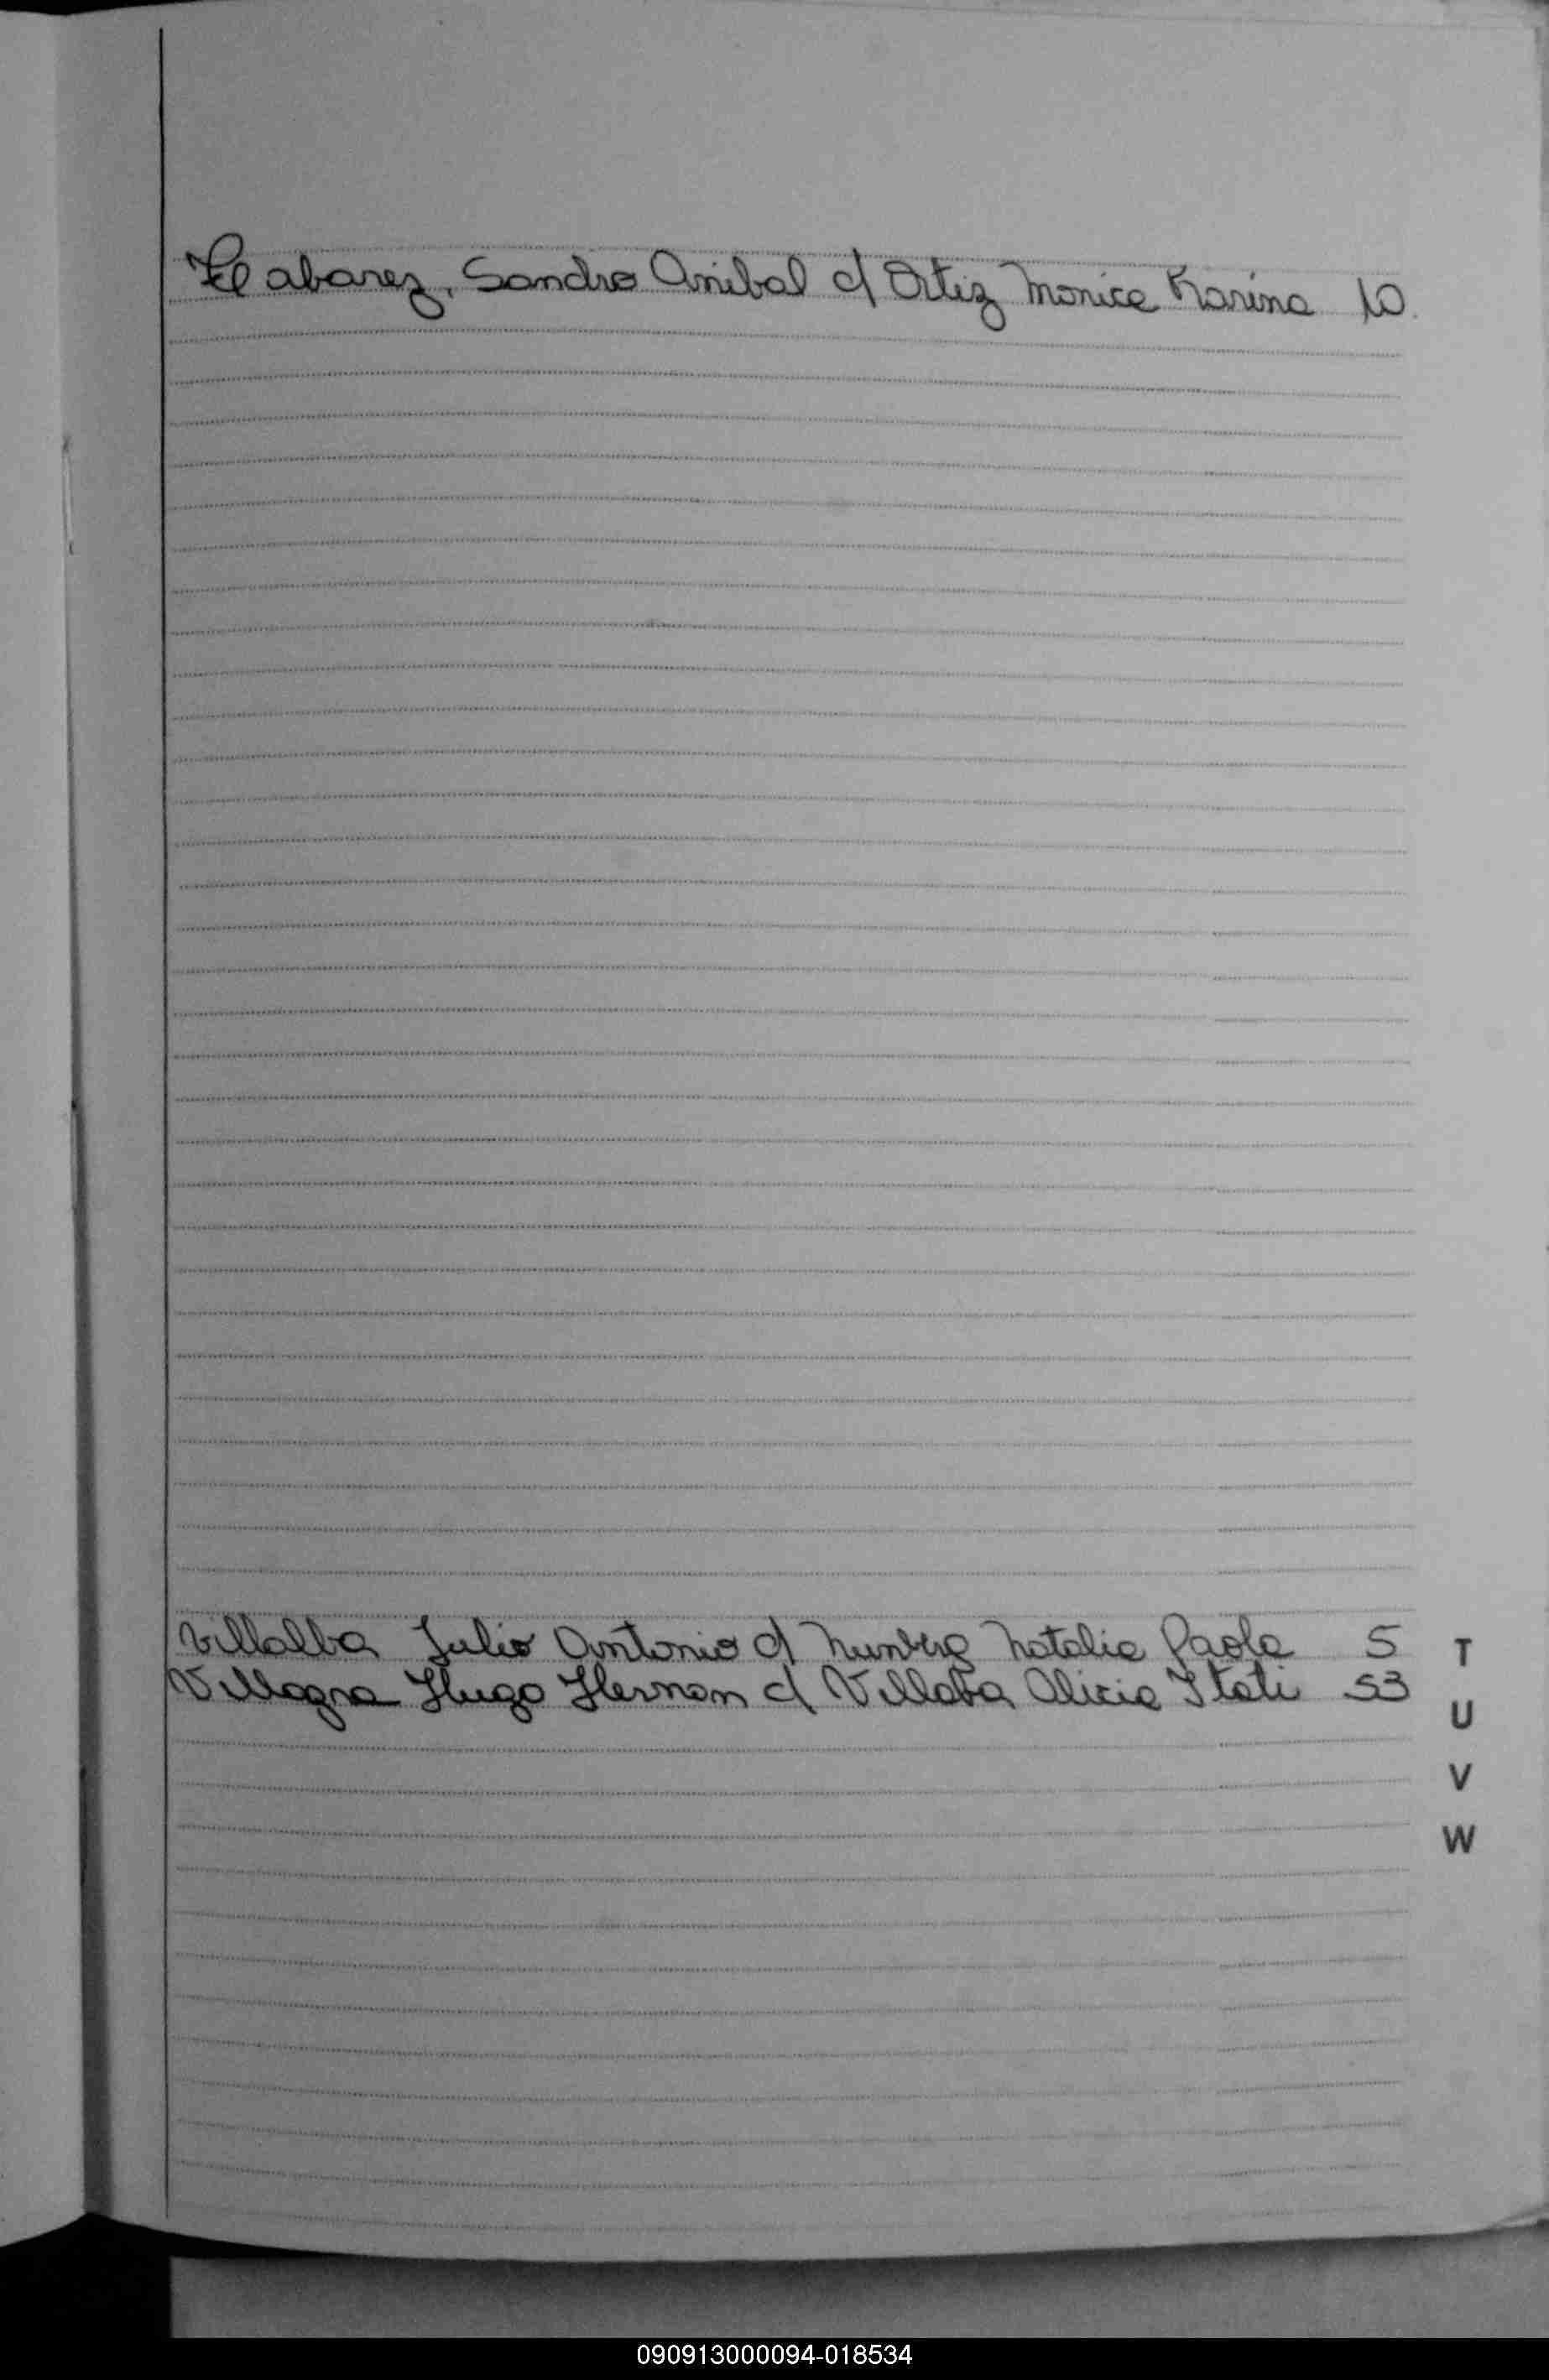 abarez, Sandro Anibal c/ Ortiz Monica Karina 10.
Villalba Julio Antonio c/ Natalia Paola 5
Villagra Hugo Hernan c/ Villaba Alicia Itati 53
T
U
V
W
090913000094-018534